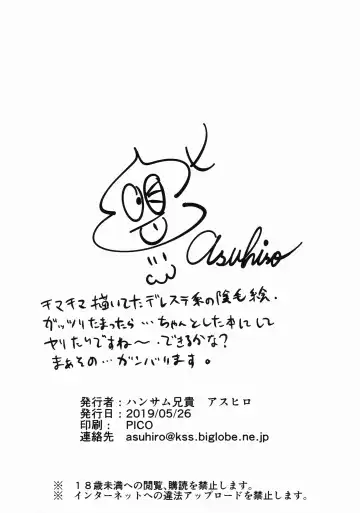 asuhiro
チマチマ描いてたデレステ系の陰毛絵、
ガッツリたまったら…ちゃんとした本にして
ヤリたいですね〜、できるかな?
まぁその…ガンバリます。
発行者:ハンサム兄貴　アスヒロ
発行日:2019/05/26
印刷:　PICO
連絡先　asuhiro@kss.biglobe.ne.jp
※　18歳未満への閲覧、購読を禁止します。
※　インターネットへの違法アップロードを禁止します。